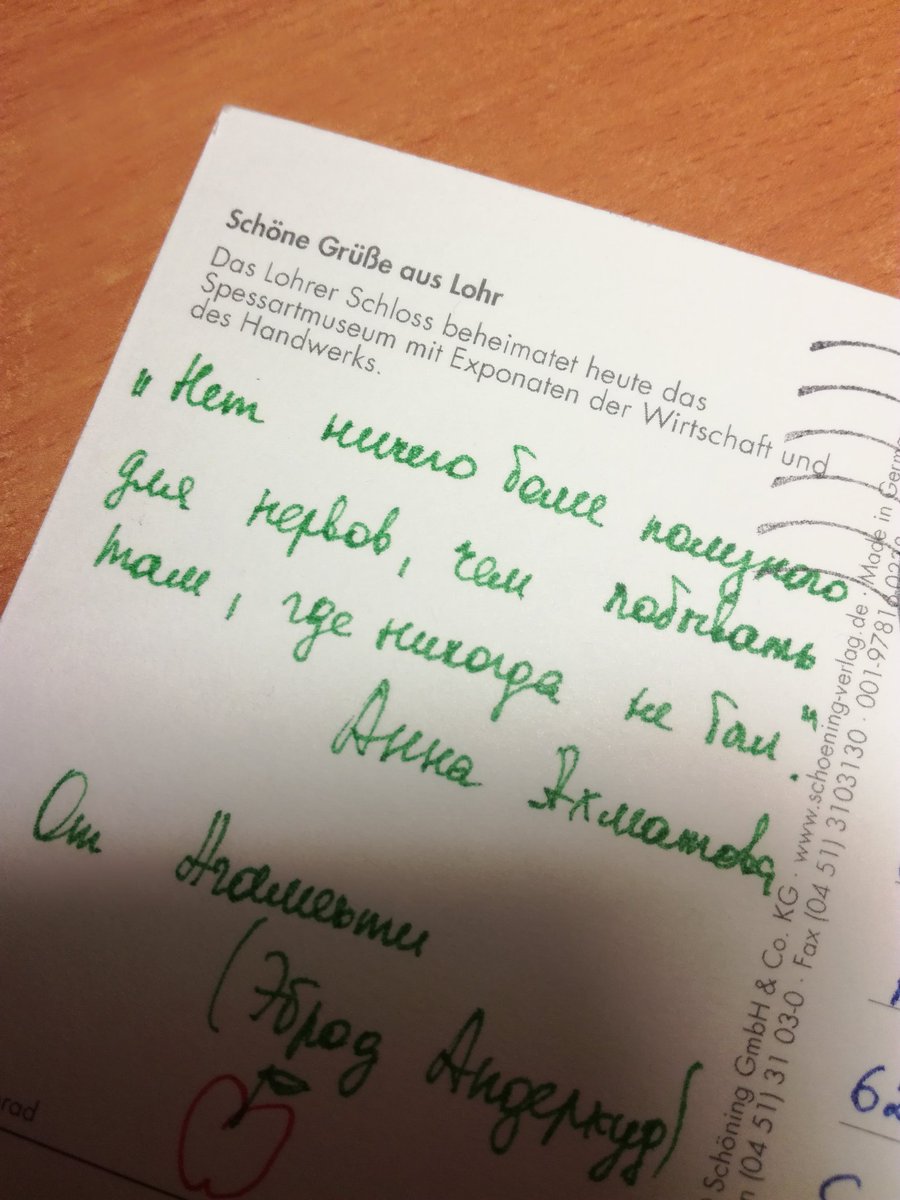 Schöne Grüße aus Lohr
Das Lohrer Schloss beheimatet heute das
Spessartmuseum mit Exponaten der Wirtschaft und
des Handwerks.
"Нет ничего более полезного
для нервов, чем побывать
там, где никогда не был."
Анна Ахматова
От
(Эброд Андерхуд)
Schöning GmbH & Co. KG · www.schoening-verlag.de · Made in
(04 51) 31 03-0 · Fax (04 51) 3103130 · 001-9781
62